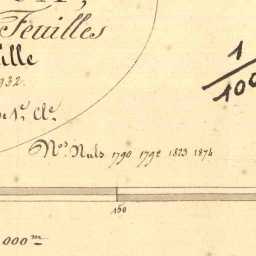 Feuilles
ille
932.
1/100
1.e Cl.e
Nos. Nuls 1790 1792 1823 1874
150
000m